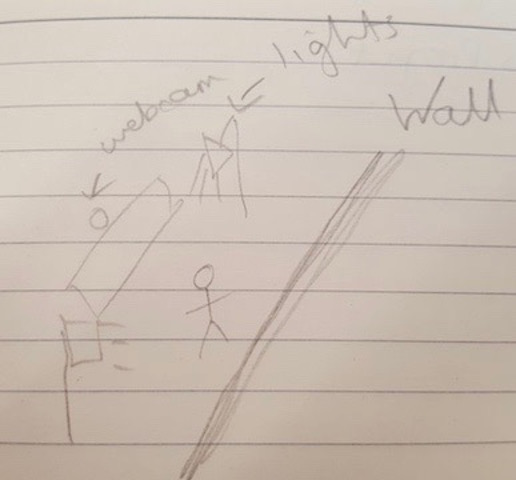 lights
webcam
Wall